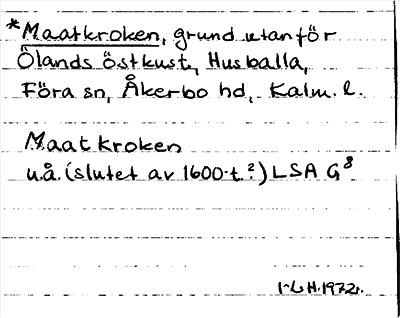 *Maatkroken, grund utanför
Ölands östkust, Husballa,
Föra sn, Åkerbo hd, Kalm. l.
Maatkroken
u.å. (slutet av 1600-t.?) LSA G⁸
1972.